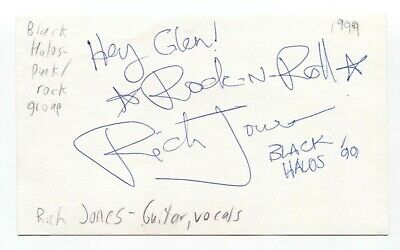 Black
Halos-
Punk/
rock
group
1999
Hey Glen!
☆Rock-N-Roll☆
Rich Jones
BLACK
HALOS '99
Rich Jones- Guitar, vocals